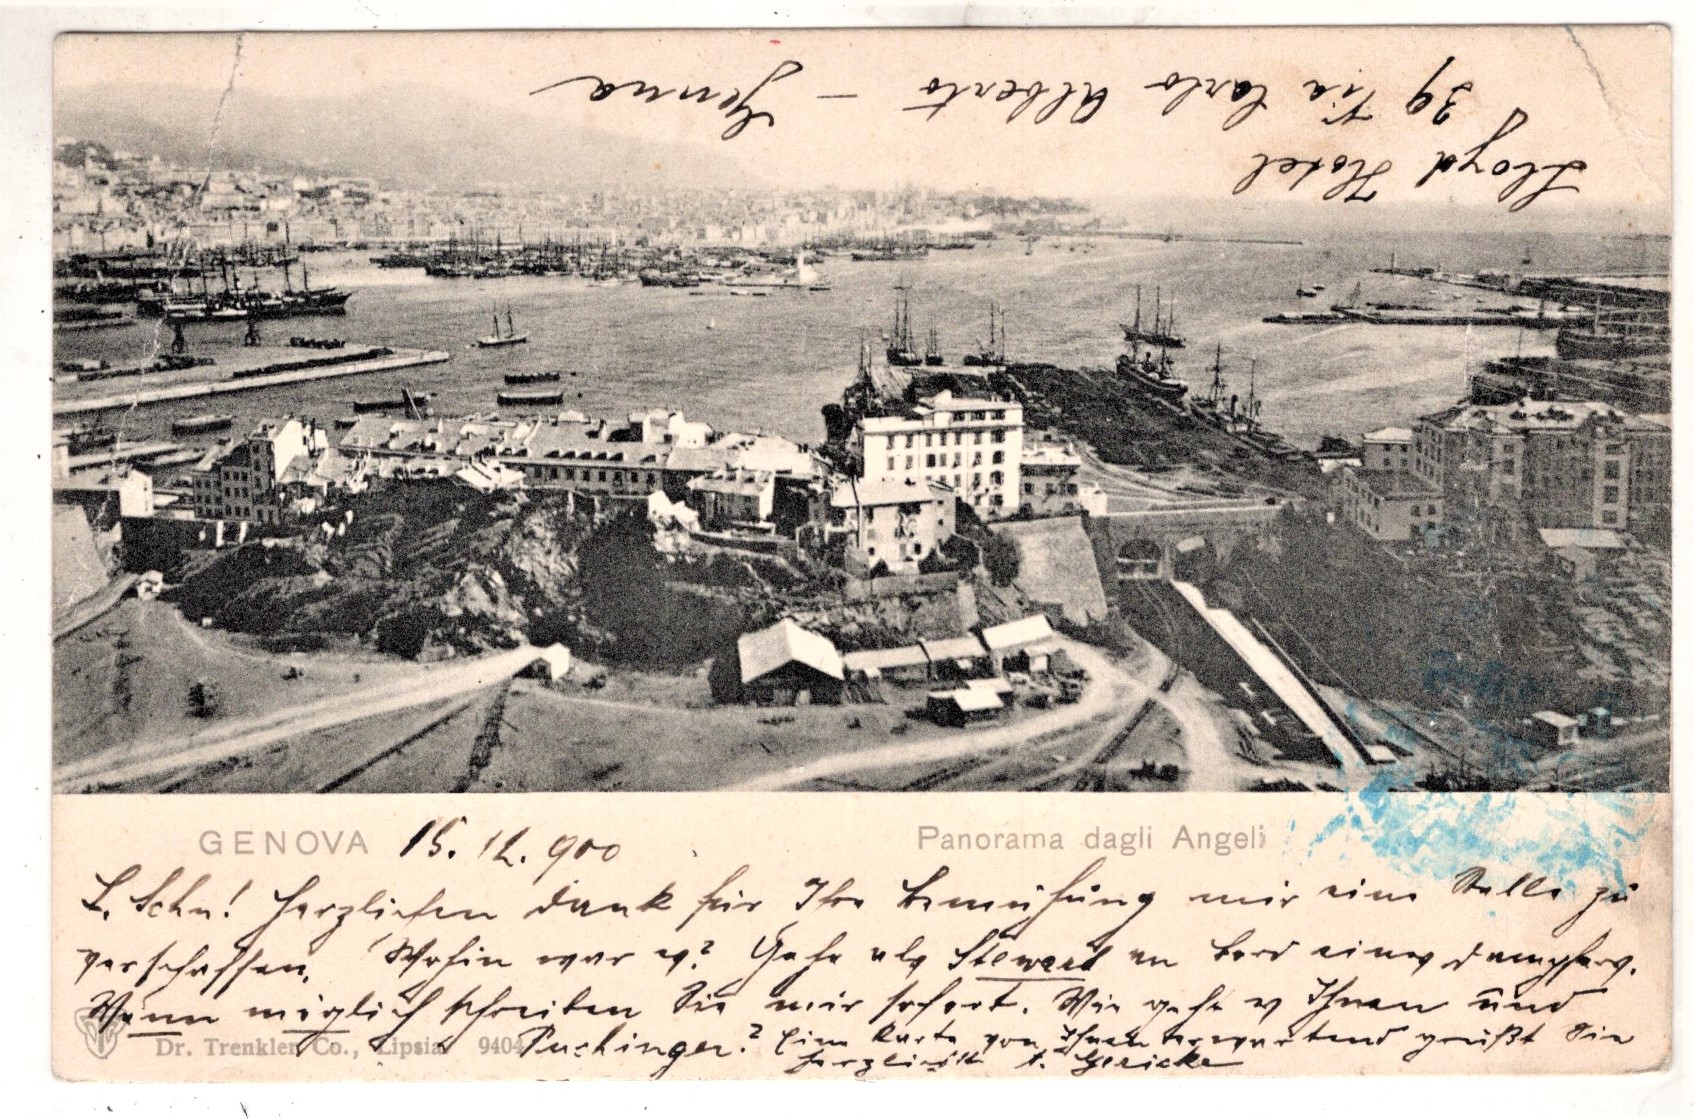 Lloyd Hotel
39 Via Carlo Alberto – Genua
GENOVA 15. 12. 900 Panorama dagli Angeli
L. Schn! Herzlichen Dank für Ihre Bemühung mir eine Stelle zu
verschaffen. Wohin war es? Gehe als Steward an Bord eines Dampfers.
Wenn möglich schreiben Sie mir sofort. Wie geht es Ihnen und
Puchinger? Eine Karte von Ihnen erwartend grüßt Sie
herzlichst Gericke
Dr. Trenkler Co., Lipsia. 9404